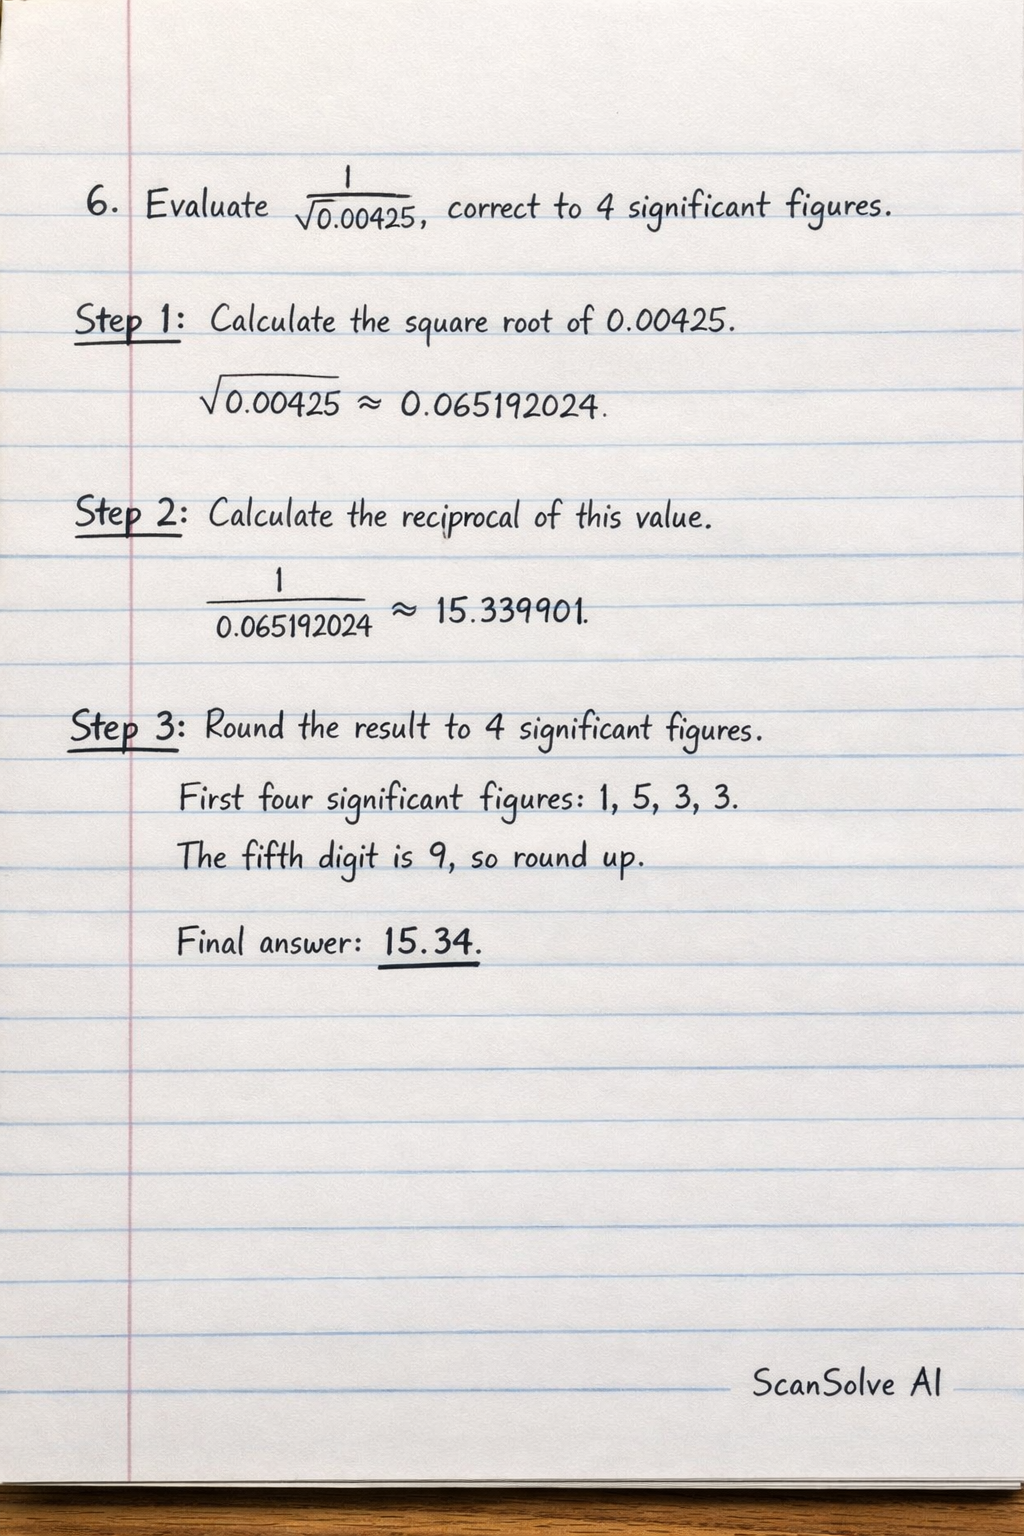 6. Evaluate 1/√0.00425, correct to 4 significant figures.
Step 1: Calculate the square root of 0.00425.
√0.00425 ≈ 0.065192024.
Step 2: Calculate the reciprocal of this value.
1/0.065192024 ≈ 15.339901.
Step 3: Round the result to 4 significant figures.
First four significant figures: 1, 5, 3, 3.
The fifth digit is 9, so round up.
Final answer: 15.34.
ScanSolve AI